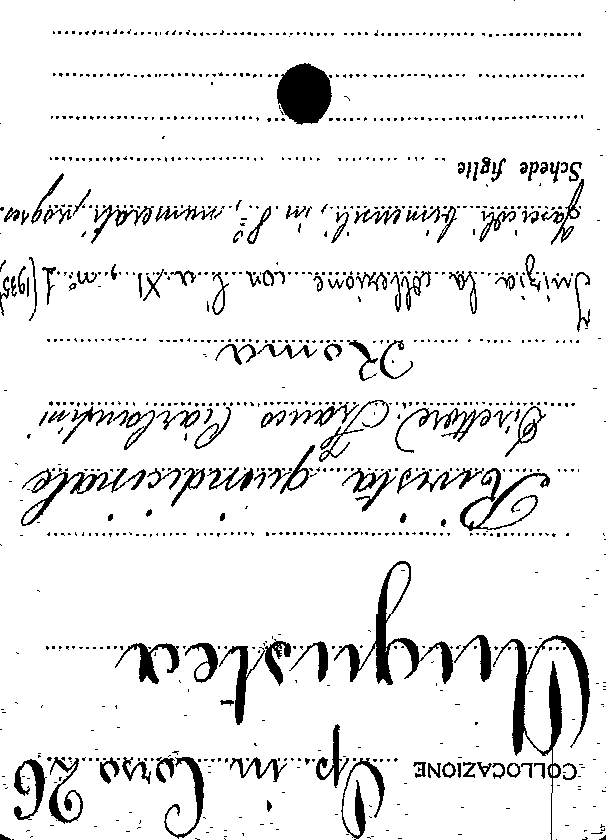 COLLOCAZIONE P. in Corso 26
Augustea
Rivista quindicinale
Direttore: Franco Ciarlantini
Roma
Inizia la collezione con l'a. XI, nº 1 (1935)
Fascicoli bimensili, in 8º, numerati, progres.
Schede figlie